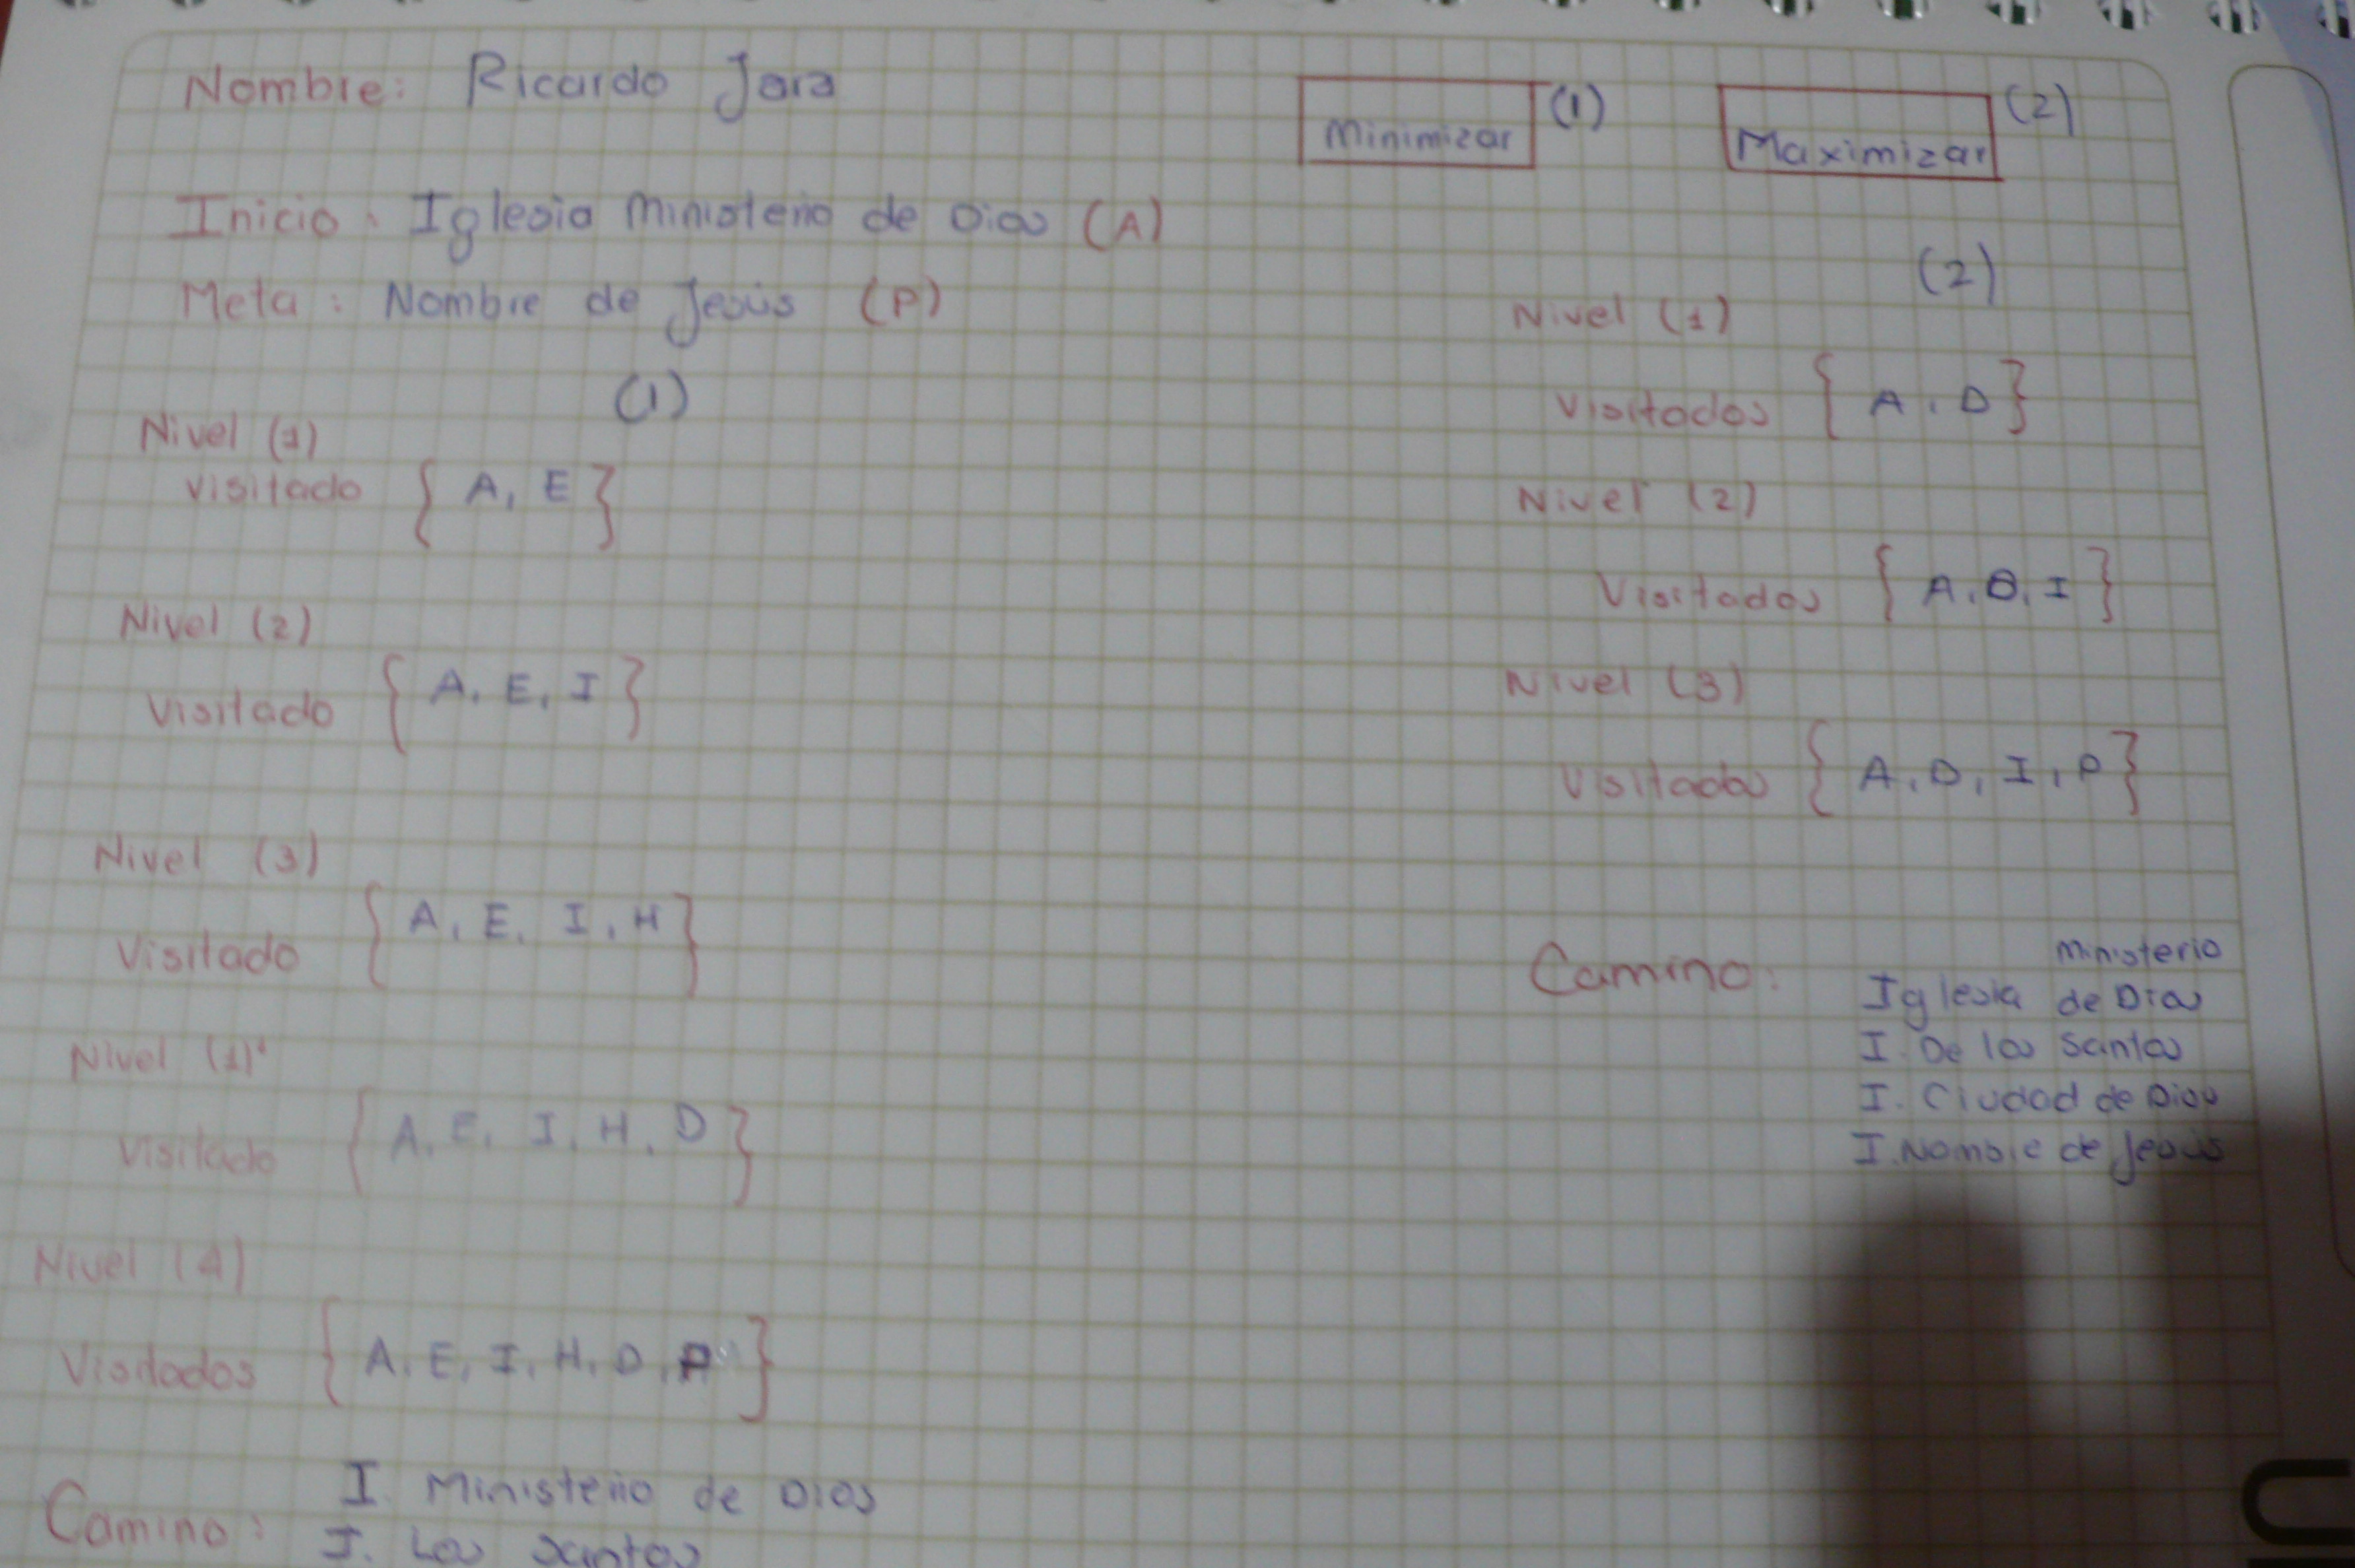 Nombre: Ricardo Jara
Minimizar (1)
Maximizar (2)
Inicio: Iglesia Ministerio de Dios (A)
Meta: Nombre de Jesús (P)
(1)
Nivel (1)
Visitado { A, E }
Nivel (2)
Visitado { A, E, I }
Nivel (3)
Visitado { A, E, I, H }
Nivel (1)'
Visitado { A, E, I, H, D }
Nivel (4)
Visitados { A, E, I, H, D, P }
Camino: I. Ministerio de Dios
I. Los Santos
(2)
Nivel (1)
Visitados { A, D }
Nivel (2)
Visitados { A, D, I }
Nivel (3)
Visitados { A, D, I, P }
Camino: Iglesia Ministerio de Dios
I. De los Santos
I. Ciudad de Dios
I. Nombre de Jesús